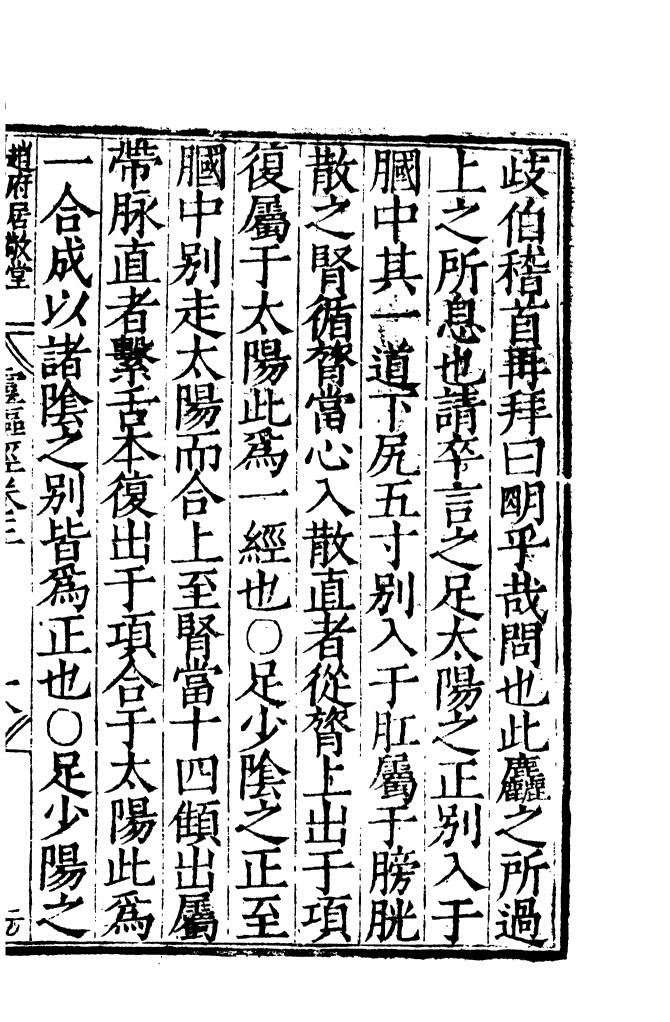 歧伯稽首再拜曰明乎哉問也此麤之所過
上之所息也請卒言之足太陽之正別入于
膕中其一道下尻五寸別入于肛屬于膀胱
散之腎循膂當心入散直者從膂上出于項
復屬于太陽此爲一經也○足少陰之正至
膕中別走太陽而合上至腎當十四顀出屬
帶脉直者繫舌本復出于項合于太陽此爲
一合成以諸陰之別皆爲正也○足少陽之
趙府居敬堂
靈樞經卷三